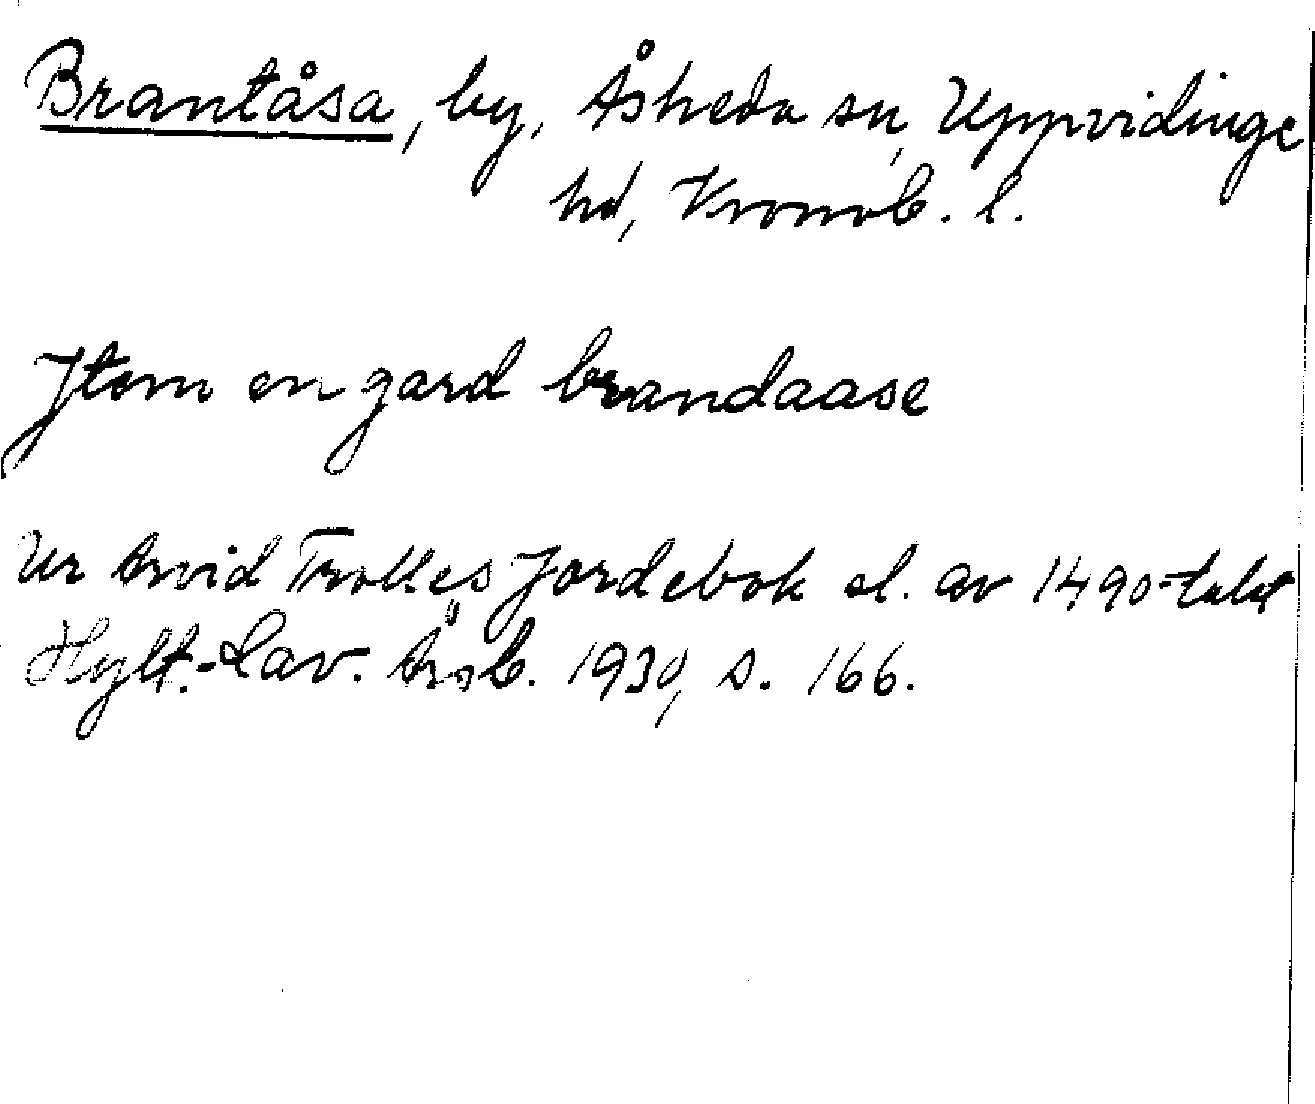 Brantåsa, by, Åsheda sn, Uppvidinge
hd, Kronob. l.
Jtem en gard brandaase
Ur Arvid Trolles Jordebok sl. av 1490-talet
Hylt.-Cav. Årsb. 1930, s. 166.